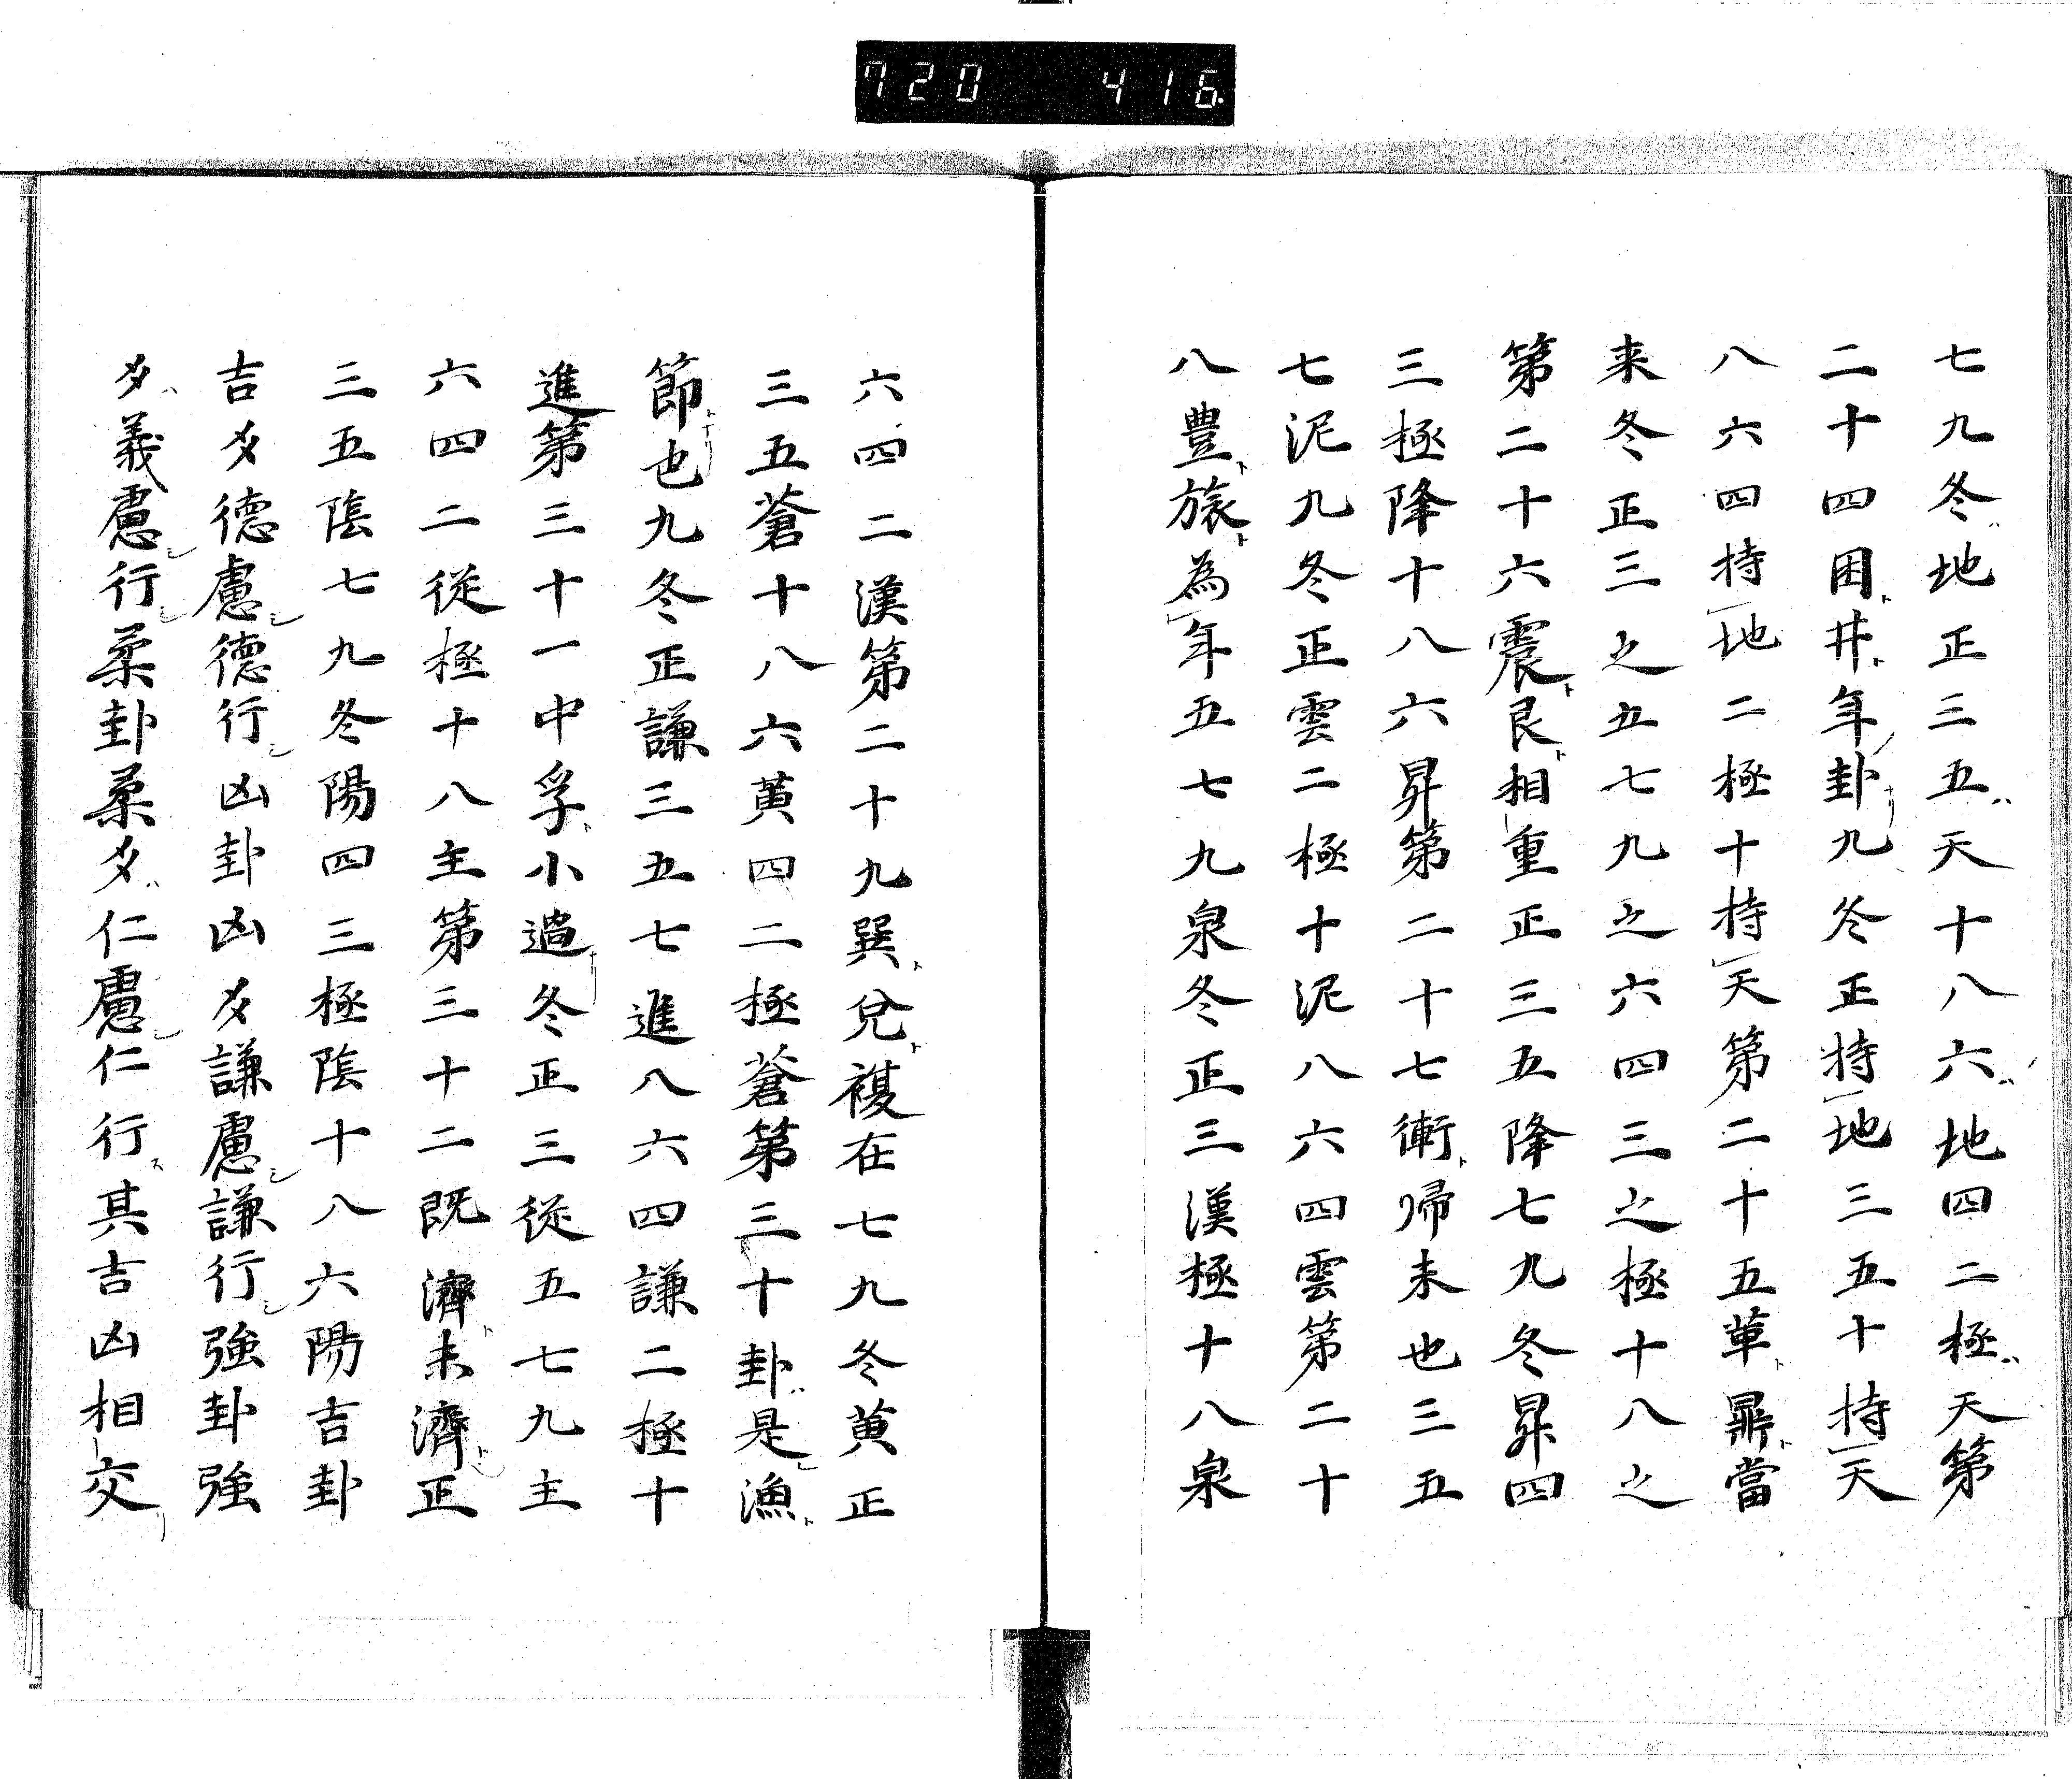 720 416
七九冬地正三五天十八六地四二極天第
二十四困井年卦九冬正持地三五十持天
八六四持地二極十持天第二十五革鼎當
来冬正三之五七九之六四三之極十八之
第二十六震艮相重正三五降七九冬昇四
三極降十八六昇第二十七漸帰未也三五
七泥九冬正雲二極十泥八六四雲第二十
八豊旅為年五七九泉冬正三漢極十八泉
六四二漢第二十九巽兌複在七九冬黄正
三五蒼十八六黄四二極蒼第三十卦是漁
節也九冬正謙三五七進八六四謙二極十
進第三十一中孚小過冬正三従五七九主
六四二従極十八主第三十二既濟未濟正
三五陰七九冬陽四三極陰十八六陽吉卦
吉爻德慮德行凶卦凶爻謙慮謙行強卦強
爻義慮行柔卦柔爻仁慮仁行其吉凶相交